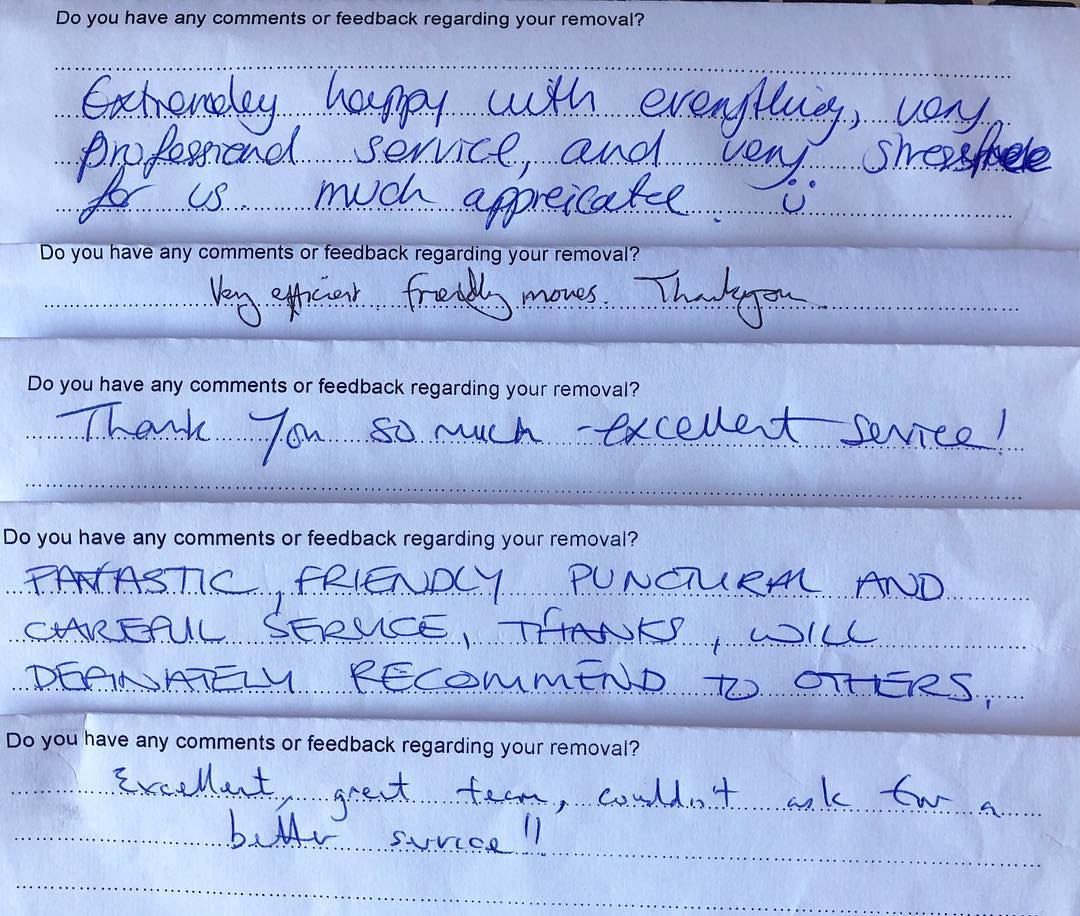 Do you have any comments or feedback regarding your removal?
Extremeley happy with everything, very
professional service, and very stressfree
for us. much appreicated. :)
Do you have any comments or feedback regarding your removal?
Very efficient friendly moves. Thankyou
Do you have any comments or feedback regarding your removal?
Thank You so much - excellent service!
Do you have any comments or feedback regarding your removal?
FANTASTIC, FRIENDLY PUNCTURAL AND
CAREFUL SERVICE, THANKS, WILL
DEFINATELY RECOMMEND TO OTHERS.
Do you have any comments or feedback regarding your removal?
Excellent, great team, couldn't ask for a
better service!!